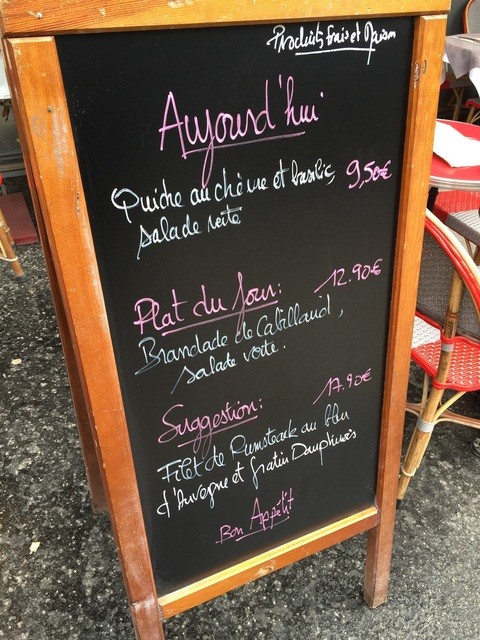 Produits frais et Maison
Aujourd'hui
Quiche au chèvre et basilic, 9,50€
salade verte
Plat du Jour: 12.90€
Brandade de Cabillaud,
salade verte.
Suggestion: 17.90€
Filet de Rumsteack au bleu
d'Auvergne et gratin Dauphinois
Bon Appétit